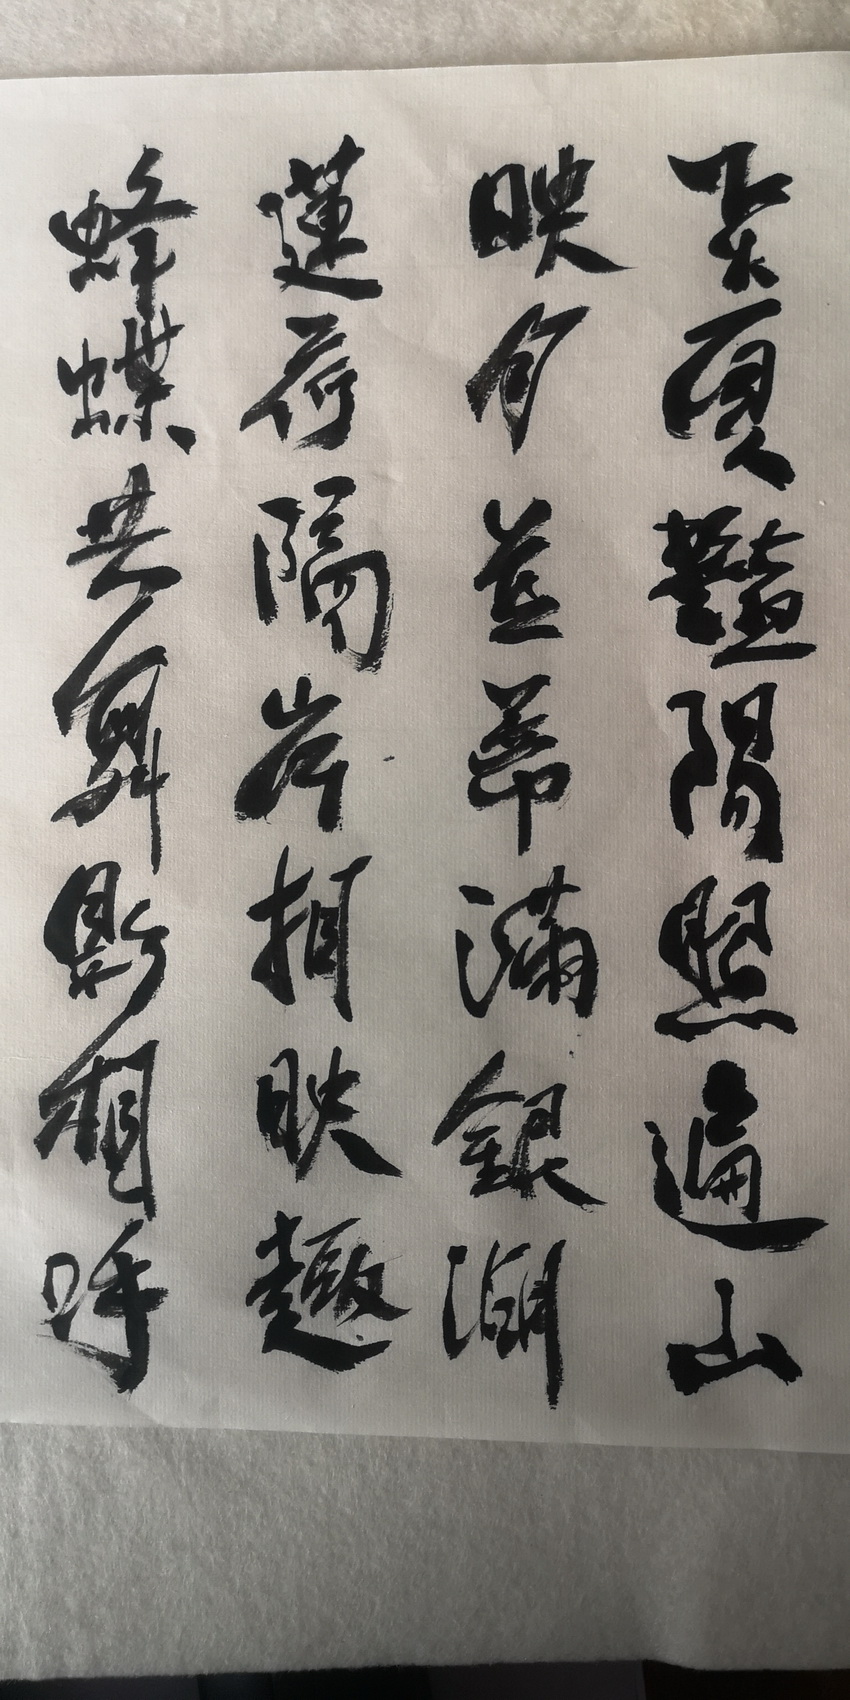 夏豔陽照遍山
映荷並蒂滿銀湖
蓮荷隔岸相映趣
蜂蝶共舞影相呼